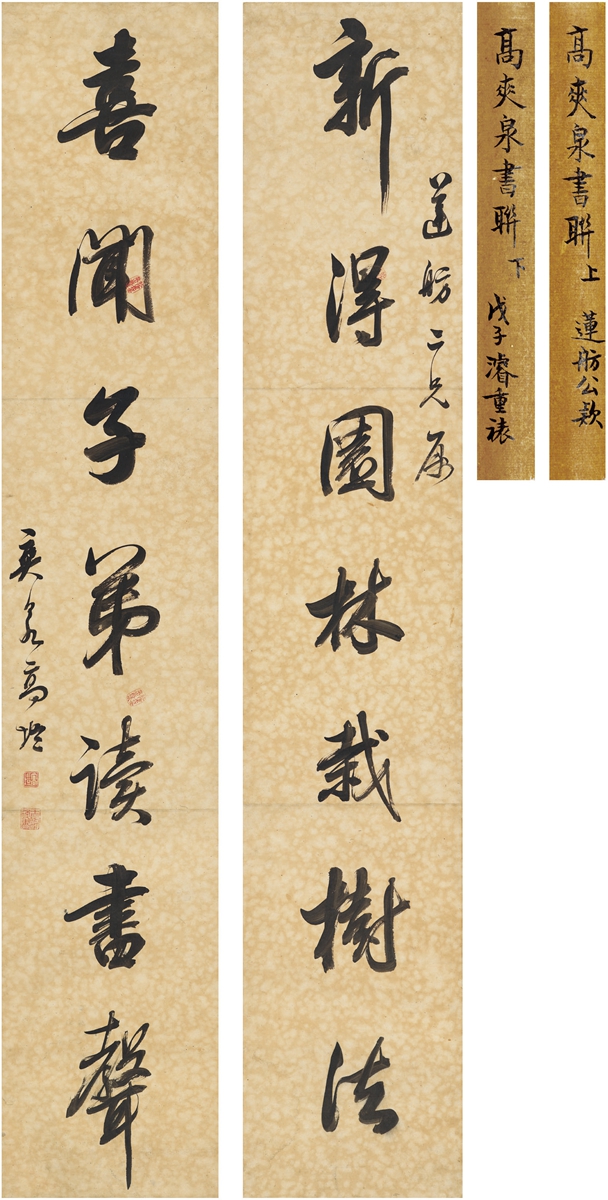 高爽泉書聯上 蓮舫公款
高爽泉書聯下 戊子濬重裱
新得園林栽樹法
蓮舫二兄属
喜聞子弟读書聲
爽泉高塏